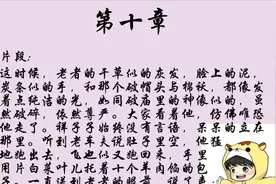 第十章
片段：
这时候，老者的干草似的灰发，脸上的泥，
炭条似的手，和那个破帽头与棉袄，都像发
着点纯洁的光，如同破庙里的神像似的，虽
然破碎，依然尊严。大家看着他，仿佛唯恐
他走了。祥子始终没有言语，呆呆的立在
那里。听到老车夫说肚子里空，他猛
地跑出去，飞也似又跑回来，手里
用片白菜叶儿托着十个羊肉馅的包